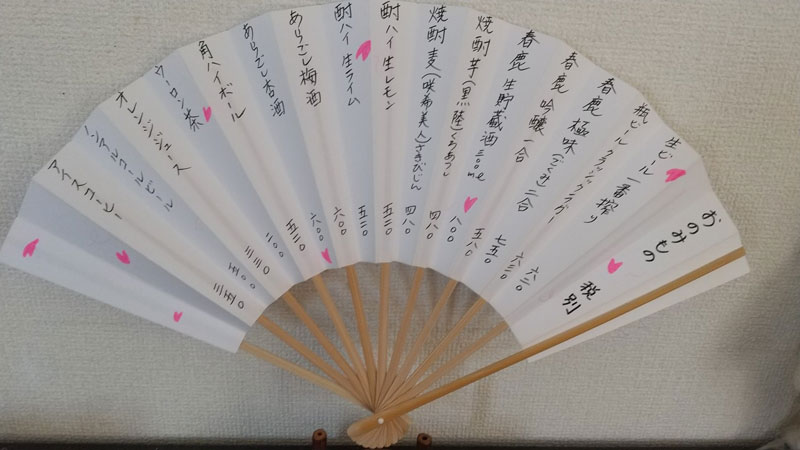 おのみもの 税別
生ビール 一番搾り 六二〇
瓶ビール クラシックラガー 六三〇
春鹿 極味(ごくみ)二合 七五〇
春鹿 吟醸 一合 五八〇
春鹿 生貯蔵酒 三〇〇ml 八〇〇
焼酎 芋(黒陸)くろあつし 四八〇
焼酎 麦(咲希美人)さきびじん 四八〇
酎ハイ 生レモン 五三〇
酎ハイ 生ライム 五三〇
あらごし梅酒 六〇〇
あらごし杏酒 六〇〇
角ハイボール 五三〇
ウーロン茶 二〇〇
オレンジジュース 三三〇
ノンアルコールビール 五〇〇
アイスコーヒー 三五〇